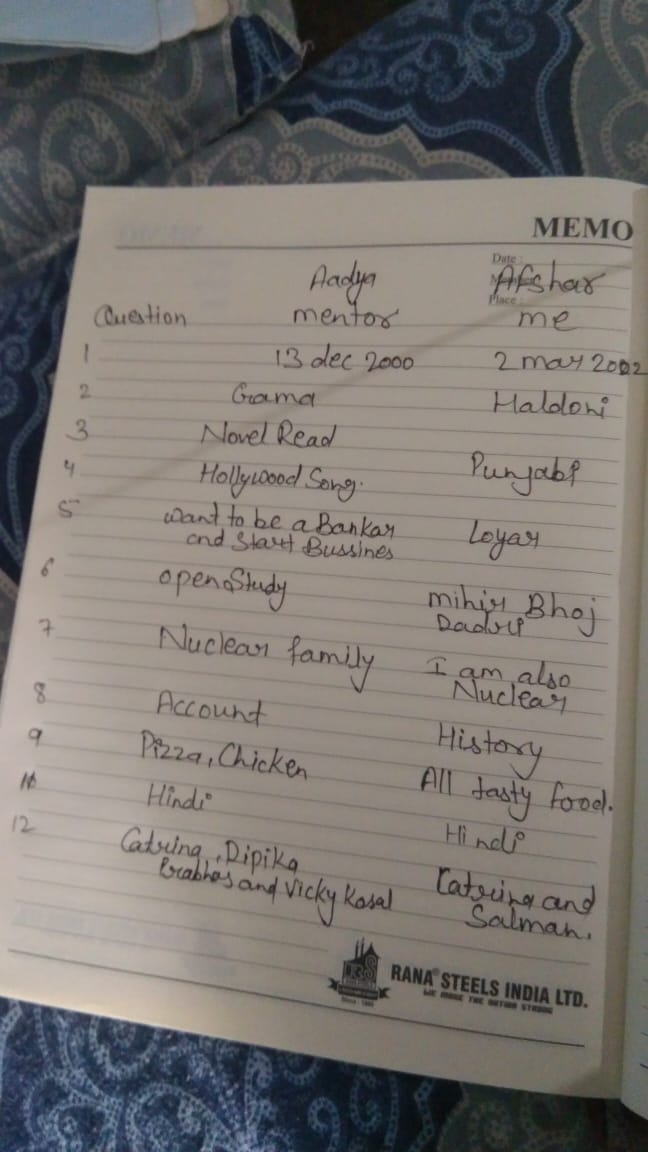 MEMO
Date :
Aadya Afshar
Place :
Question mentor me
1 13 dec 2000 2 mar 2002
2 Gama Haldoni
3 Novel Read
4 Hollywood Song. Punjabi
5 want to be a Bankar Loyar
and Start Bussines
6 open Study mihir Bhoj
Dadri
7 Nuclear family I am also
Nuclear
8 Account History
9 Pizza, Chicken All tasty food.
Hindi Hindi
12 Catrina, Dipika Catrina and
Prabhas and Vicky Kosal Salman.
RANA STEELS INDIA LTD.
WE MAKE THE NATION STRONG